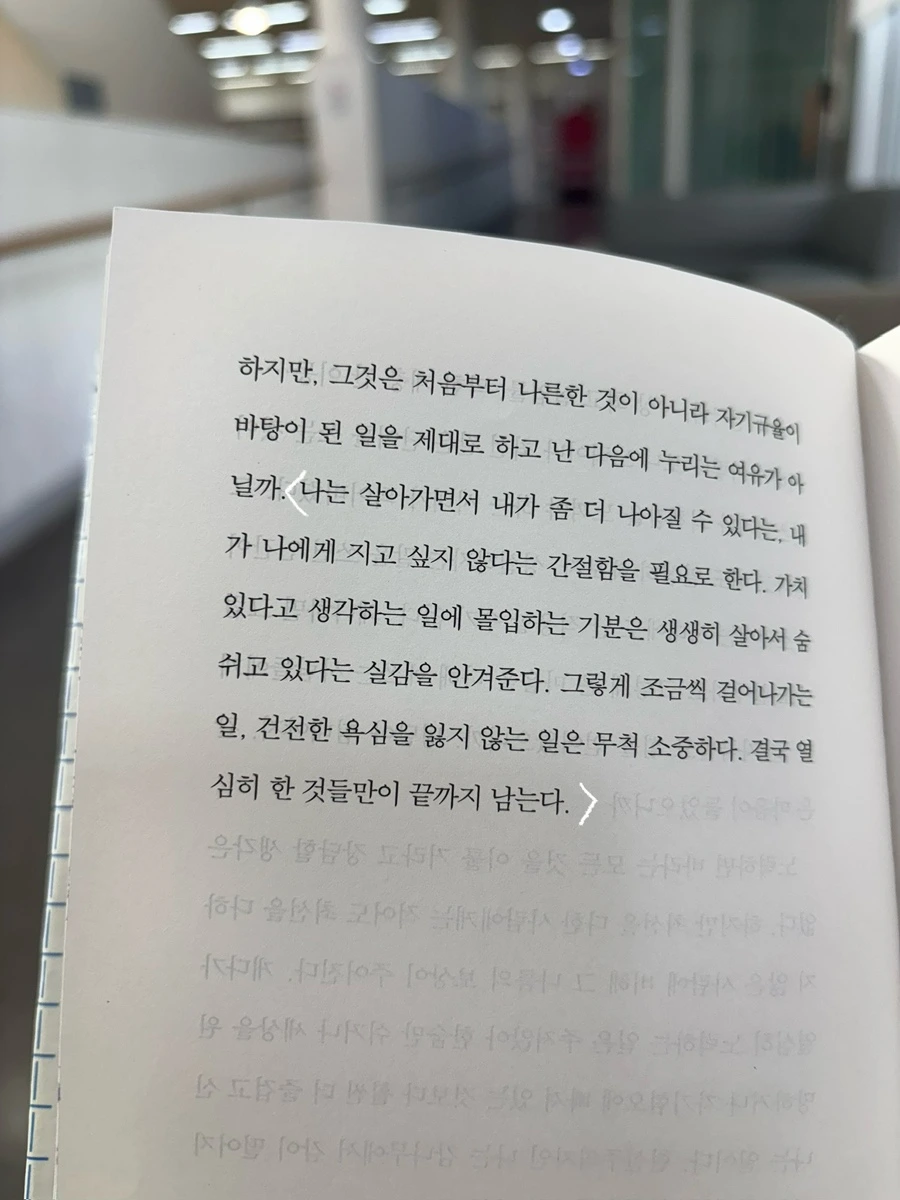 하지만, 그것은 처음부터 나른한 것이 아니라 자기규율이
바탕이 된 일을 제대로 하고 난 다음에 누리는 여유가 아
닐까. 나는 살아가면서 내가 좀 더 나아질 수 있다는, 내
가 나에게 지고 싶지 않다는 간절함을 필요로 한다. 가치
있다고 생각하는 일에 몰입하는 기분은 생생히 살아서 숨
쉬고 있다는 실감을 안겨준다. 그렇게 조금씩 걸어나가는
일, 건전한 욕심을 잃지 않는 일은 무척 소중하다. 결국 열
심히 한 것들만이 끝까지 남는다.